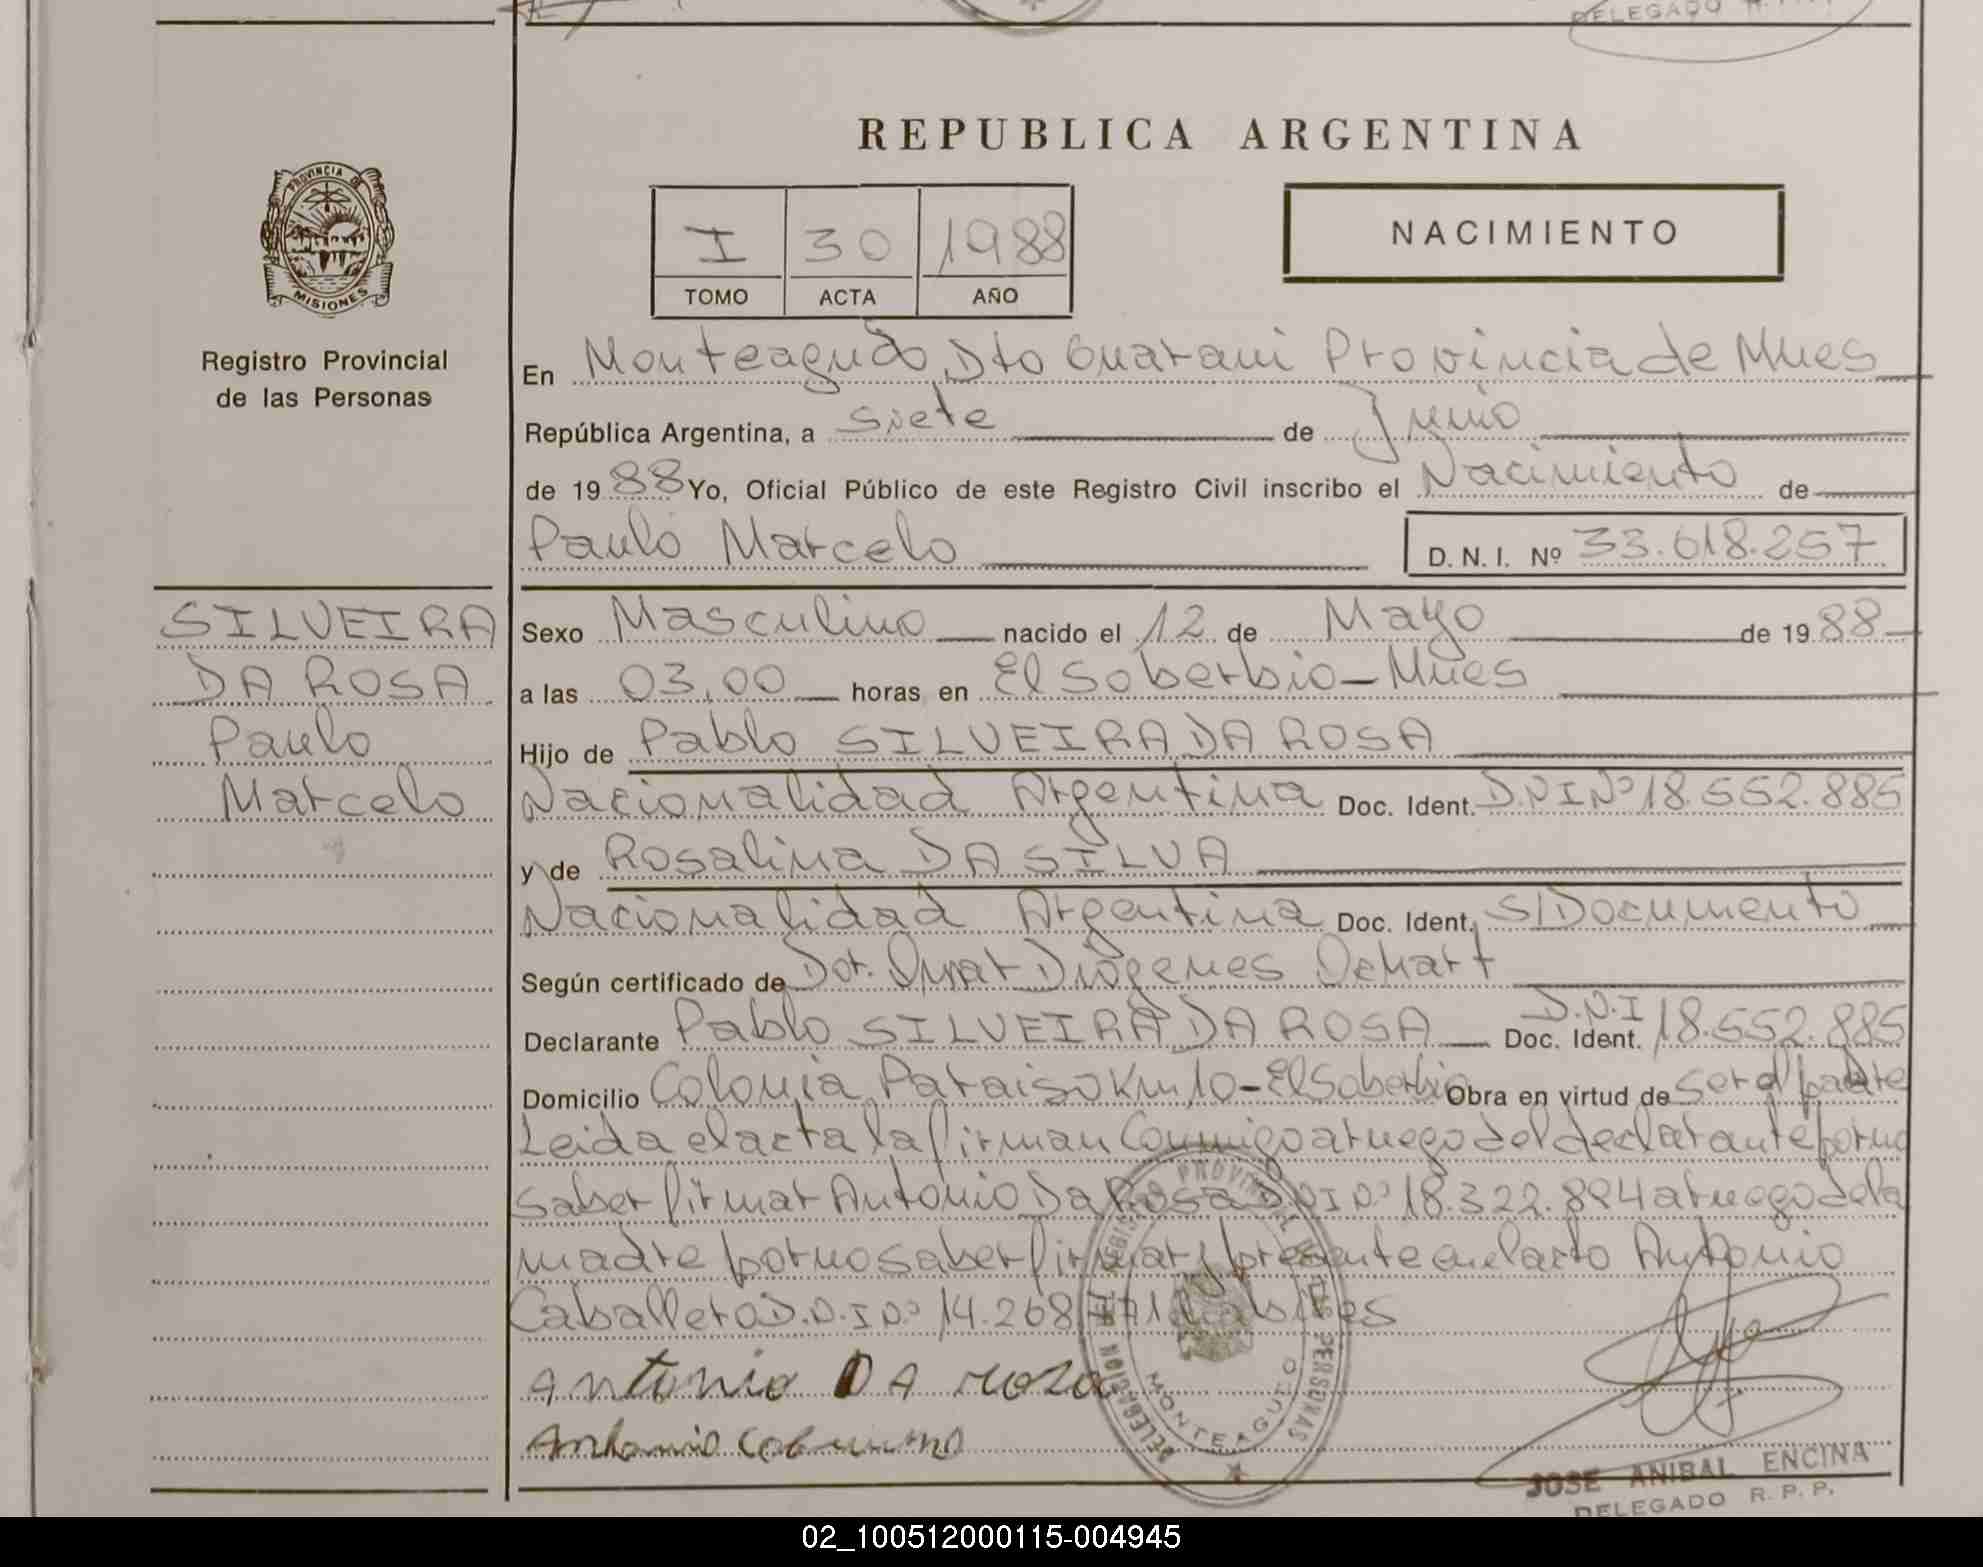 DELEGADO R.P.P.
REPUBLICA ARGENTINA
PROVINCIA DE
MISIONES
Registro Provincial
de las Personas
I 30 1988
TOMO ACTA AÑO
NACIMIENTO
En Monteagudo, Dto Guarani Provincia de Mnes
República Argentina, a siete de Junio
de 1988 Yo, Oficial Público de este Registro Civil inscribo el Nacimiento de
Paulo Marcelo D. N. I. Nº 33.618.257
SILVEIRA
DA ROSA
Paulo
Marcelo
Sexo Masculino nacido el 12 de Mayo de 1988
a las 03,00 horas en El Soberbio - Mnes
Hijo de Pablo SILVEIRA DA ROSA
Nacionalidad Argentina Doc. Ident. D.N.I Nº 18.552.885
y de Rosalina DA SILVA
Nacionalidad Argentina Doc. Ident. S/Documento
Según certificado de Dor. Omar Diogenes
Declarante Pablo SILVEIRA DA ROSA Doc. Ident. D.N.I 18.552.885
Domicilio Colonia Paraiso Km 10 - El Soberbio Obra en virtud de ser el padre
Leida el acta la firman Conmigo a ruego del declarante por no
saber firmar Antonio Da Rosa D.N.I Nº 18.322.894 a ruego de la
madre por no saber firmar y presente en el acto Antonio
Caballero D.N.I Nº 14.268.771 habiles
Antonio DA ROZA
Antonio
REGISTRO PROVINCIAL DE LAS PERSONAS
DELEGACION
MONTEAGUDO
JOSE ANIBAL ENCINA
DELEGADO R. P. P.
02_100512000115-004945